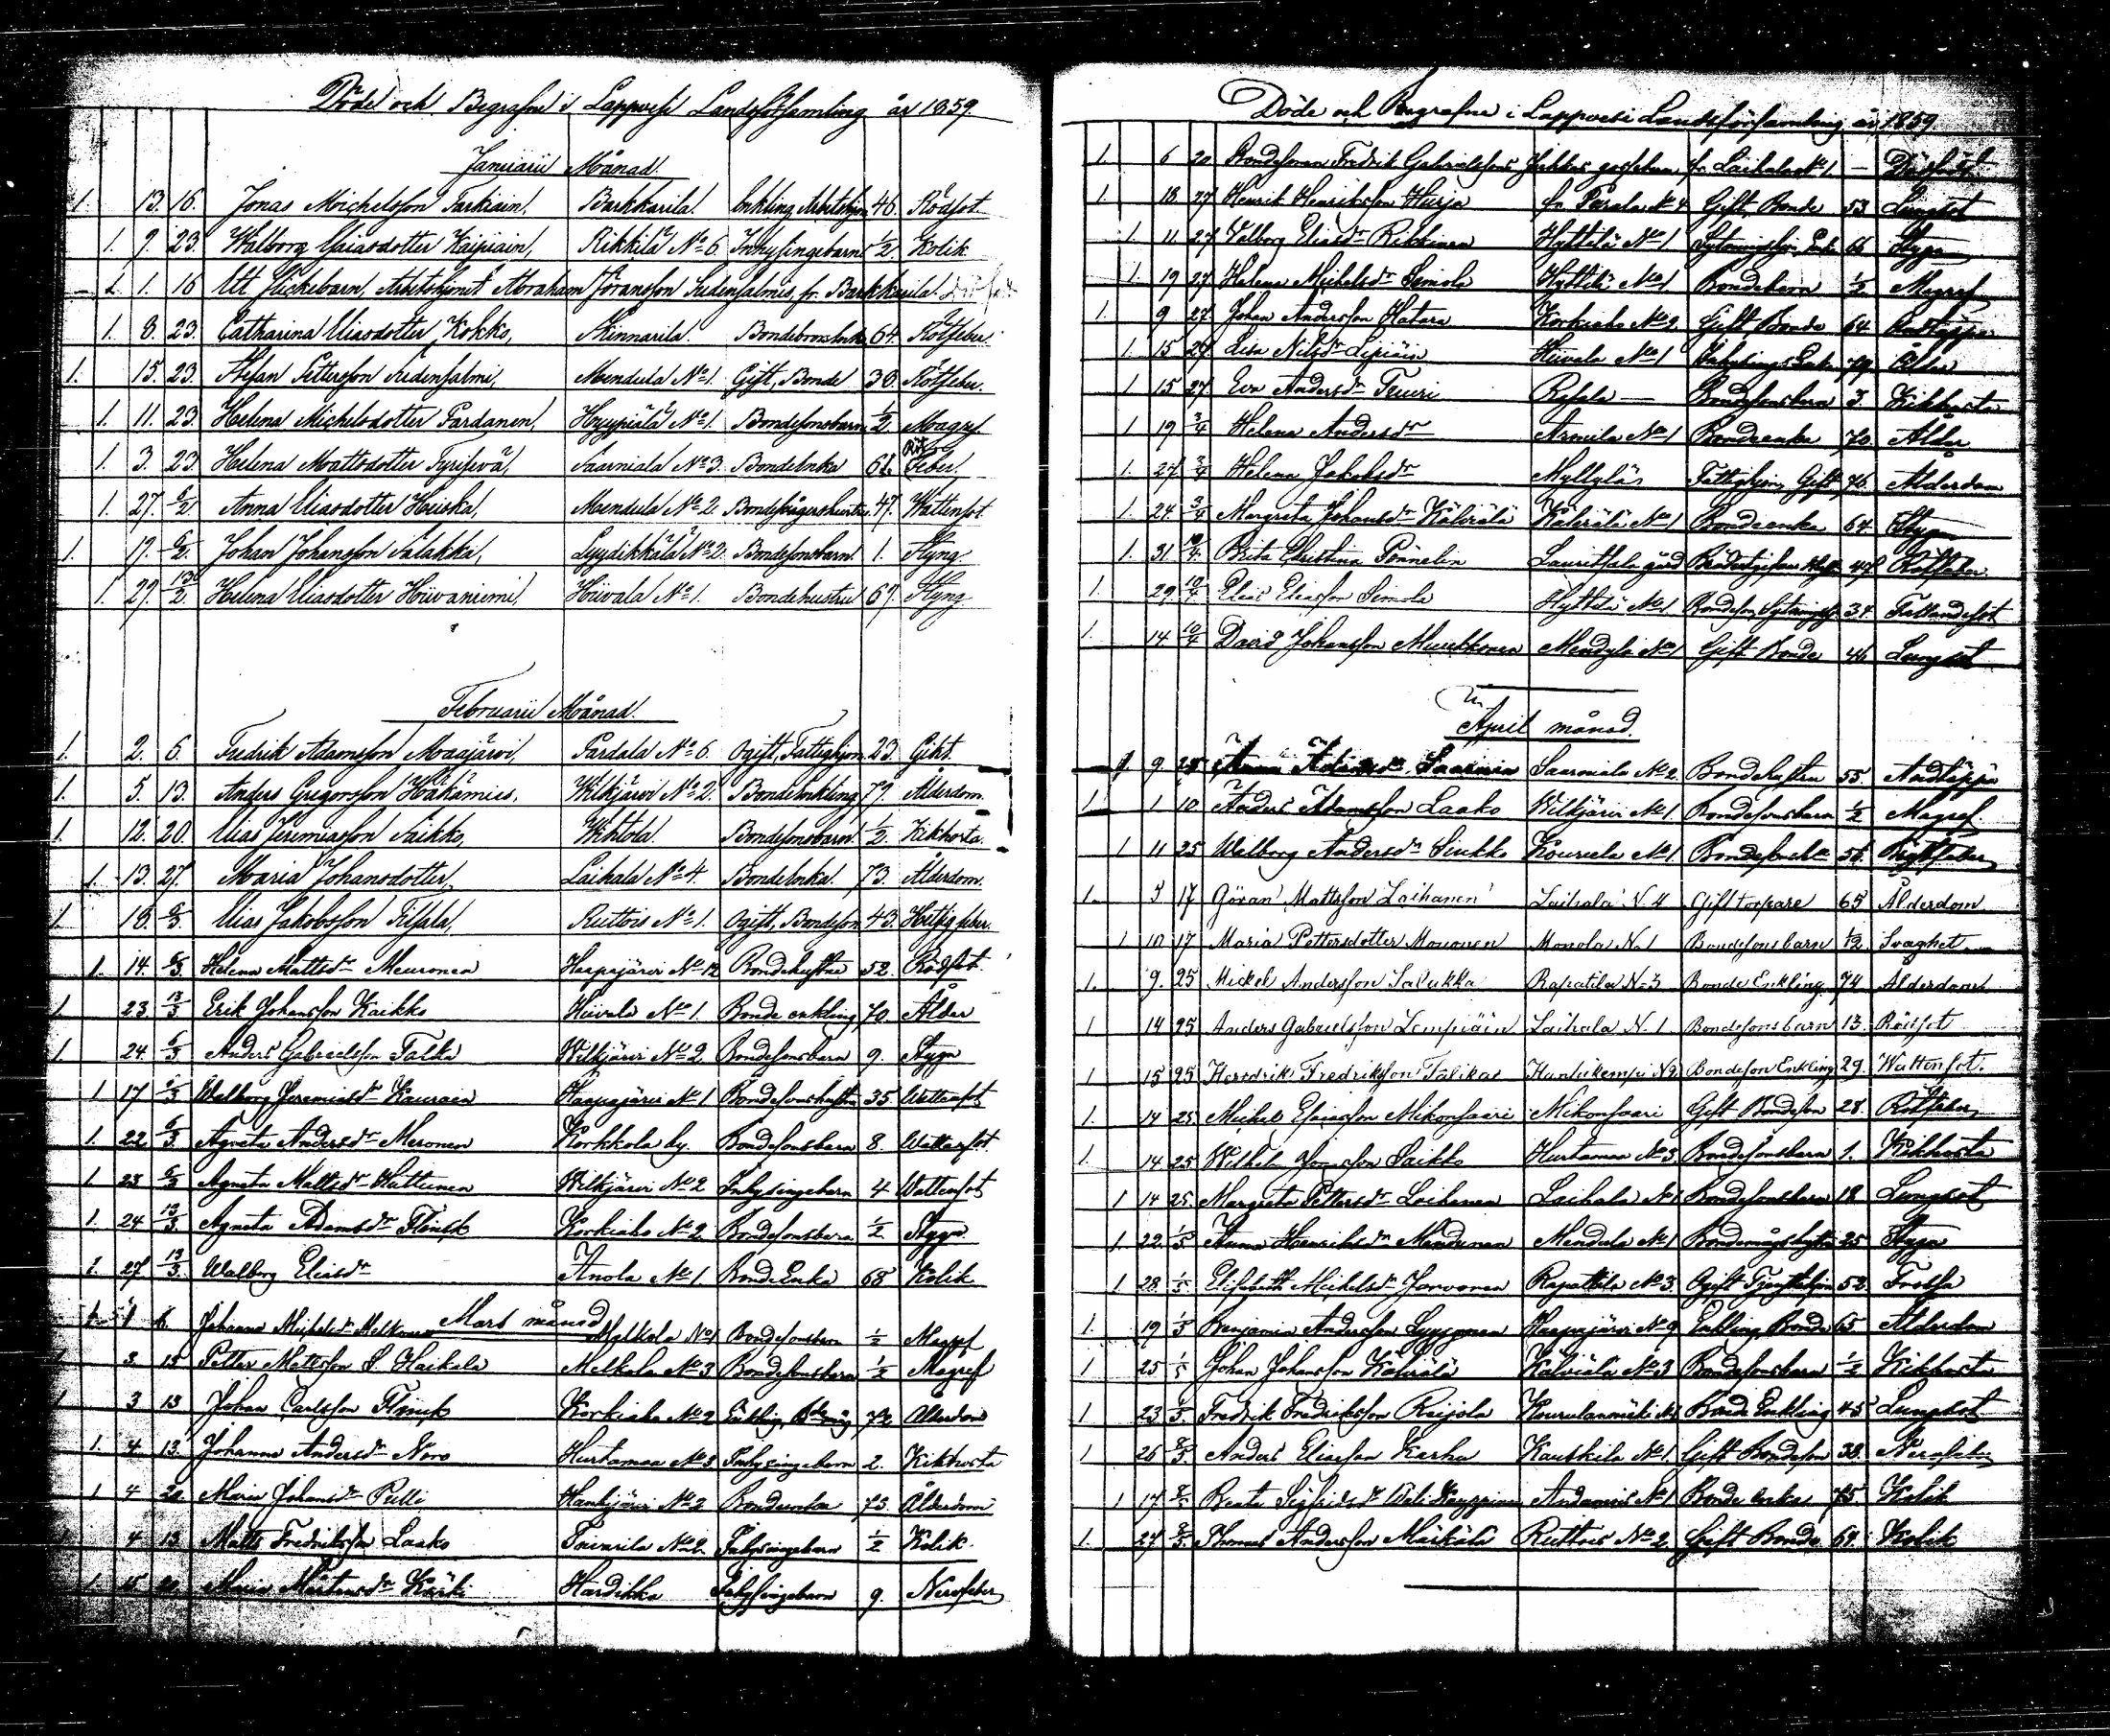 Döde och Begrafne i Lappvesi Landsförsamling år 1859.
Januarii Månad.
1. 13. 16. Jonas Michelsson Tarkiain, Barkkarila. Enkling, Arbetshjon 46. Rödsot
1. 9. 23. Walborg Esaiasdotter Kaipiain, Rikkilä No 6. Inhysingebarn 1/2. Kolik
1. 1. 16 Ett Flickebarn, Arbetshjonet Abraham Göransson Sudensalmis, fr. Barkkarila.
1. 8. 23. Catharina Eliasdotter Kokko, Skinnarila. 64. Rötfeber.
1. 15. 23. Stefan Pettersson Sudensalmi, Mendula No 1. Gift, Bonde 36. Rötfeber.
1. 11. 23. Helena Michelsdotter Pardanen, Hyypiälä No 1. Bondesonsbarn 1/2. Magref
1. 3. 23. Helena Mattsdotter Tyrisevä, Saarniala No 3. Bondeenka 62. Röt Feber.
1. 27. 6/2 Anna Eliasdotter Heiska, Mendula No 2. Bondemågshustru 47. Wattensot.
1. 19. 6/2. Johan Johansson Salakka, Lyydikkälä No 2. Bondesonsbarn 1. Styng.
1. 29. 13/2. Helena Eliasdotter Hiivaniemi, Hiivala No 1. Bondehustru 67. Styng
Februarii Månad.
1. 2. 6. Fredrik Adamsson Maajärvi, Pardala No 6. Ogift, Fattighjon 23. Gikt.
1. 5. 13. Anders Gregorsson Häkämies, Wilkjärvi No 2. Bondeenkling 79. Ålderdom.
1. 12. 20. Elias Jeremiasson Saikko, Wihtola. Bondesonsbarn 1/2. Kikhosta.
1. 13. 27. Maria Johansdotter, Laihala No 4. Bondeenka. 73. Ålderdom.
1. 18. 6/3. Elias Jakobsson Filppla, Ruttois No 1. Ogift, Bondeson 43. Hetsig feber.
1. 14. 6/3. Helena Mattsdr Meuronen Haapajärvi No 12 Bondehustru 52. Rödsot.
1 23. 13/3 Erik Johansson Kaikko Hiivala No 1. Bonde enkling 70. Ålder
1. 24. 6/3 Anders Gabrielsson Talka Wilkjärvi No 2. Bondesonsbarn 9. Stygn
1 17 6/3 Walborg Jeremiasdr Kaurain Haapajärvi No 1 Bondesonshustru 35 Wattensot
1. 22 6/3 Agneta Andersdr Meronen Korkkola by. Bondesonsbarn 8. Wattensot
1 23 6/3 Agneta Mattsdr Huttunen Wilkjärvi No 2 Inhysingebarn 4 Wattensot
1. 24 13/3 Agneta Adamsdr Flinck Korkiaho No 2 Bondesonsbarn 1/2 Stygn
1. 27 13/3. Walborg Eliasdr Anola No 1 Bonde Enka 68 Kolik
Mars månad
Johanna Michelsdr Melkonen Melkola No 1 Bondesonsbarn 1/2 Magref
1 3. 13 Petter Mattsson S. Haikala Melkola No 3 Bondesonsbarn 1/2 Magref
1 3 13 Johan Carlsson Flinck Korkiaho No 2 Enkling, Bdemåg 72 Ålderdom
1. 4 13. Johanna Andersdr Noro Hurtamaa No 3 Inhysingebarn 2. Kikhosta
1 4 20. Maria Johansdr Pulli Hanhijärvi No 2 Bondeenka 73. Ålderdom
1 4 13. Matts Fredriksson Laako Toivarila No 2 Inhysingebarn 1/2 Kolik
1. 15 20. Maria Mårtensdr Kärki Hardikka Inhysingebarn 9. Nervfeber
Döde och Begrafne i Lappvesi Landsförsamling år 1859.
1. 6 20 Bondesonen Fredrik Gabrielssons fr. Laihala No 1. — Dödfödt.
1. 18. 27 Henrik Henriksson Hurja fr. Parala No 4 Gift Bonde 53 Lungsot
1 11 27 Valborg Eliasdr Rikkinen Hyttilä No 1 66 Stygn
1. 19 27 Helena Michelsdr Simola Hyttilä No 1 Bondebarn 1/2 Magref
1. 9 27. Johan Andersson Hatara Korkiaho No 2 Gift Bonde 64 Andtäppa
1. 15 27. Lisa Nilsdr Lipiäin Hiivala No 1 Inhysings Enka 79. Ålder
1 15 27. Eva Andersdr Teuri Rasala — Bondesonsbarn 3. Kikhosta
1 19 3/4 Helena Andersdr Armila No 1 Bondeenka 70. Ålder
1. 27 3/4 Helena Jakobsdr Myllylä Fattighjon, Gift 76. Alderdom
1. 24. 3/4 Margreta Johansdr Kälviälä Kälviälä No 1 Bondeenka 64. Stygn
1. 31. 10/4. Brita Christina Pönnelin Lauritsala gård 47 Rötfeber.
1. 29. 10/4 Elias Eliasson Simola Hyttilä No 1 34. Fallandesot
1. 14. 10/4 David Johansson Murikkonen Mendula No 1 Gift Bonde 46 Lungsot
April månad.
1 9. 25 Anna Adamsdr Saarnia Saarniala No 2. Bondehustru 55. Andtäppa
1. 1 10. Anders Adamsson Laako Wilkjärvi No 1. Bondesonsbarn 1/2 Magref.
1 11 25 Walborg Andersdr Sinkko Kourula No 1 Bondesonenka 56. Rötfeber
1. 5 17 Göran Mattsson Laihanen Laihala N. 4 Gift torpare 65 Ålderdom
1 10 17 Maria Pettersdotter Mononen Monola N. 1 Bondesonsbarn 1/2. Svaghet
1. 9. 25 Mickel Andersson Salukka Rapatila N. 3 Bonde Enkling 74 Alderdom
1 14 25 Anders Gabrielsson Lempiäin Laihala N. 1 Bondesonsbarn 13. Rödsot
1 15 25 Hendrik Fredriksson Talikas Bondeson Enkling 29. Wattensot.
1. 14 25. Michel Esaiasson Mikonsaari Mikonsaari Gift Bondeson 28. Rötfeber
1. 14 25 Wilhelm Jonasson Saikko Hurtamaa No 3. Bondesonsbarn 1. Kikhosta
1 14 25. Margreta Pettersdr Laihanen Laihala No 1 Bondesonsbarn 18. Lungsot
1. 22 1/5 Anna Henriksdr Mendunen Mendula No 1 Bondemågshustru 25 Stygn
1 28 1/5 Elisabeth Michelsdr Jarvonen Rapattila No 3. Ogift Tjensthjon 52. Trossa
1. 19 1/5 Benjamin Andersson Lyyjynen Haapajärvi No 9 Enkling Bonde 65 Alderdom
1 25 1/5 Johan Johansson Kälviälä Kälviälä No 3 Bondesonsbarn 1/2 Kikhosta
1 23 1/5 Fredrik Fredriksson Reijola Kourulanmäki No 1 Bonde Enkling 45 Lungsot
1 26 8/5. Anders Eliasson Karhu Kauskila No 1. Gift Bondeson 38. Nervfeber
1 17 8/5 Beata Sigfridsdr No 1 Bonde enka 75 Kolik
1. 27 8/5. Thomas Andersson Märkälä Ruttois No 2 Gift Bonde 69. Kolik